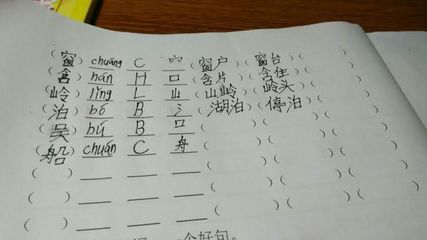 （窗）chuāng C 穴（窗户）（窗台）（ ）
（含）hán H 口（含片）（含住）（ ）
（岭）lǐng L 山（山岭）（岭头）（ ）
（泊）bó B 氵（湖泊）（停泊）（ ）
（吴）bú B 口（ ）（ ）（ ）
（船）chuán C 舟（ ）（ ）（ ）
（ ）（ ）（ ）（ ）
（ ）（ ）（ ）（ ）
（ ）（ ）（ ）（ ）
个好句。